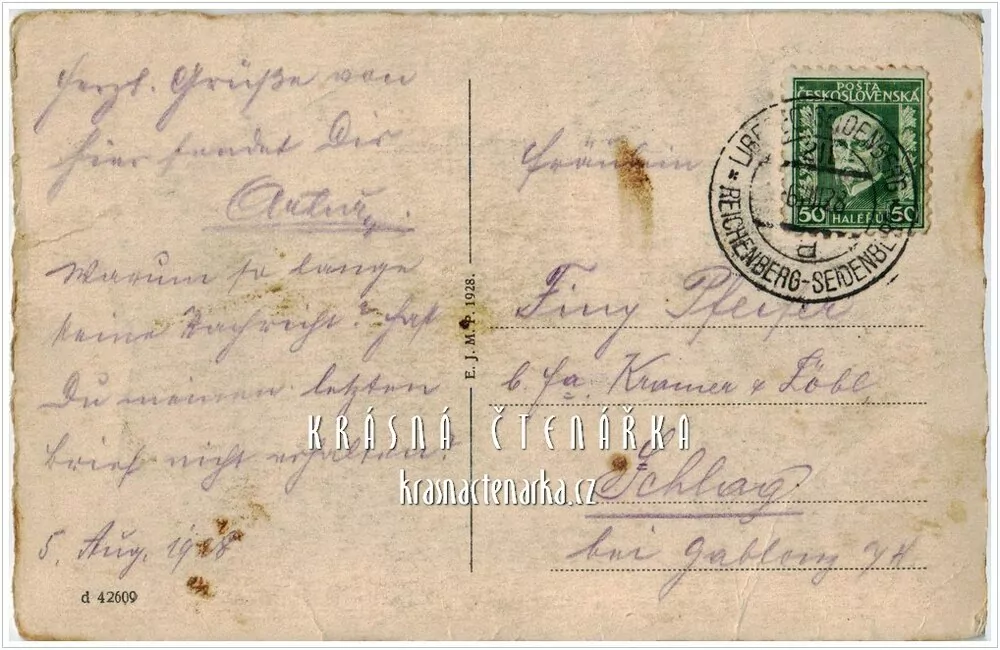 Herzl. Grüße von
hier sendet Dir
Artur
Warum so lange
keine Nachricht? Hast
Du meinen letzten
Brief nicht erhalten?
5. Aug. 1928
d 42609
E. J. M. P. 1928.
POŠTA
ČESKOSLOVENSKÁ
50 HALÉŘŮ 50
REICHENBERG-SEIDENB
Fräulein
Finy Pfeifer
b. Fa. Kramer & Löbl
Schlag
bei Gablonz
KRÁSNÁ ČTENÁŘKA
krasnactenarka.cz